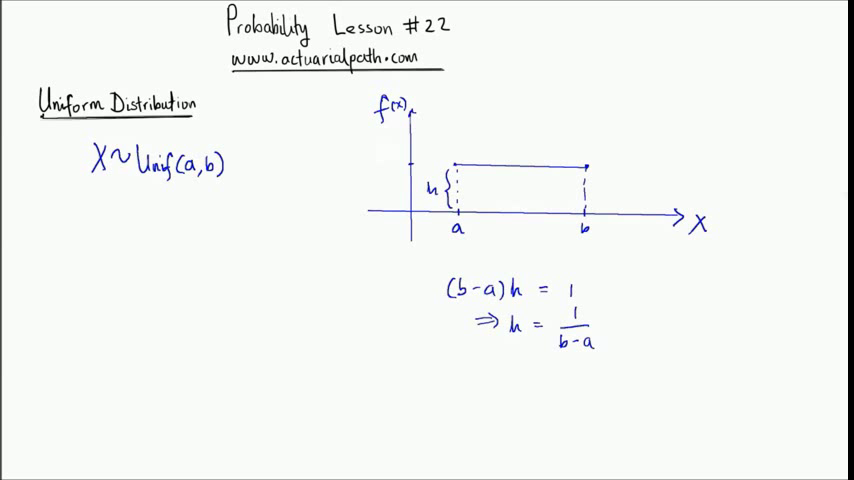 Probability Lesson #22
www.actuarialpath.com
Uniform Distribution
X ~ Unif(a,b)
f(x)
h
a
b
X
(b-a)h = 1
⇒ h = 1/(b-a)